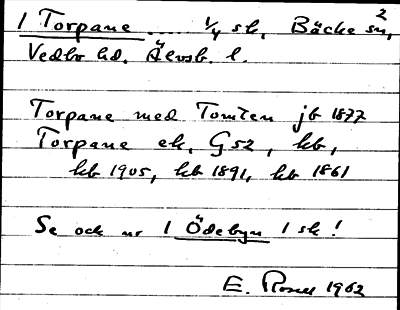 1 Torpane ..... 1/4 sk, Bäcke sn, 2
Vedbo hd. Älvsb. l.
Torpane med Tomten jb 1877
Torpane ek, G52, kb,
kb 1905, kb 1891, kb 1861
Se och nr 1 Ödebyn 1 sk!
E. Rosell 1962